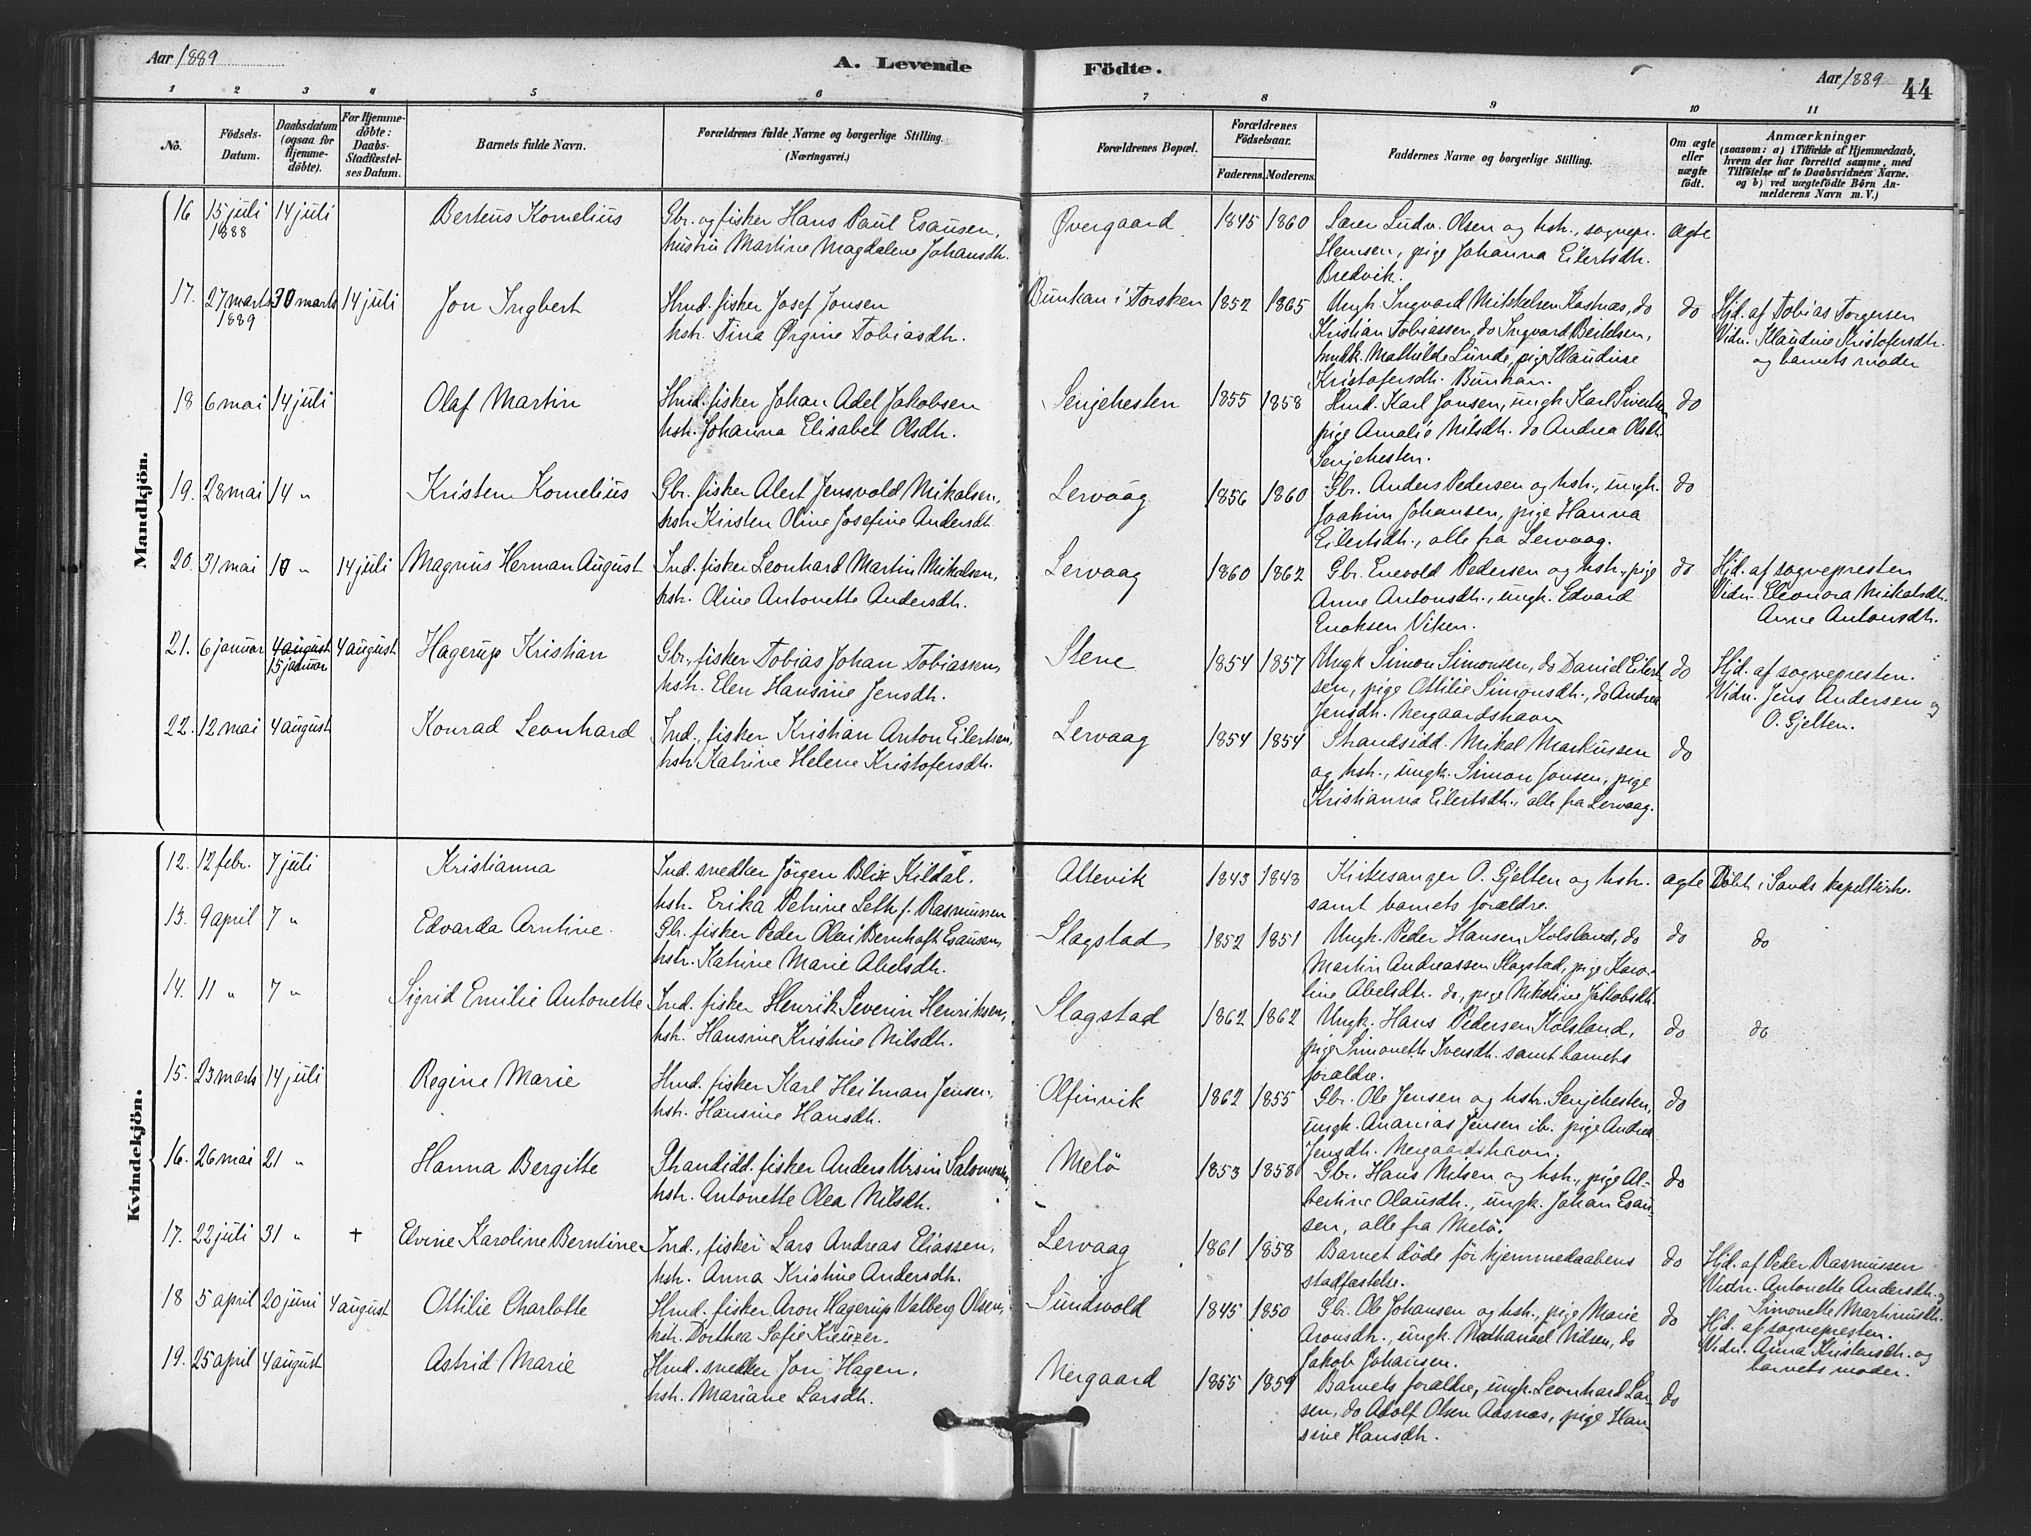 Aar 1889
A. Levende Födte.
Aar 1889
44
1 2 3 4 5 6 7 8 9 10 11
No.
Födsels-Datum.
Daabsdatum (ogsaa for Hjemme-döbte).
For Hjemme-döbte: Daabs-Stadfæstel-ses Datum.
Barnets fulde Navn.
Forældrenes fulde Navne og borgerlige Stilling.
(Næringsvei.)
Forældrenes Bopæl.
Forældrenes Födselsaar.
Faderens. Moderens.
Faddernes Navne og borgerlige Stilling.
Om ægte eller uægte födt.
Anmærkninger
(saasom: a) i Tilfælde af Hjemmedaab, hvem der har forrettet samme, med Tilföielse af to Daabsvidners Navne. og b) ved uægtefödte Börn An-melderens Navn m. V.)
Mandkjön.
16 15 juli 1888 14 juli Berteus Kornelius
Gbr. og fisker Hans Paul Esausen,
hustru Martine Magdalene Johansdh.
Øvergaard 1845 1860
Søren Ludv. Olsen og hst., sognepr.
Hemsen, pige Johanna Eilertsdh.
Bredvik.
ægte
17. 27 marts 1889 30 marts 14 juli Jon Ingbert
Hmd. fisker Josef Jonsen
hst. Tina Ørgine Tobiasdh.
Bunkan i Torsken 1852 1865
Ungk. Ingvard Mikkelsen Kastnæs, do
Kristian Tobiassen, do Ingvard Bertelsen,
hmdk. Mathilde Lunde, pige Klaudine
Kristofersdh. Bunkan.
do
Hjd. af Tobias Torgersen
Vidn. Klaudine Kristofersdh.
og barnets moder
18 6 mai 14 juli Olaf Martin
Hmd. fisker Johan Adel Jakobsen
hst. Johanna Elisabet Olsdh.
Senjehesten 1855 1858
Hmd. Karl Jonsen, ungk. Karl Sivertsen
pige Amalie Nilsdh. do Andrea Olsdh.
Senjehesten.
do
19. 28 mai 14 " Kristen Kornelius
Gbr. fisker Alert Jensvold Mikalsen,
hst. Kirsten Oline Josefine Andersdh.
Lervaag 1856 1860
Gbr. Anders Pedersen og hst., ungk.
Joakim Johansen, pige Hanna
Eilertsdh., alle fra Lervaag.
do
20. 31 mai 10 " 14 juli Magnus Herman August
Ind. fisker Leonhard Martin Mikalsen,
hst. Oline Antonette Andersdh.
Lervaag 1860 1862
Gbr. Enevold Pedersen og hst., pige
Anne Antonsdh., ungk. Edvard
Enoksen Viken.
do
Hjd. af sognepresten
Vidn. Eleonora Mikalsdh.
Anne Antonsdh.
21. 6 januar 4 august 15 januar 4 august Hagerup Kristian
Gbr., fisker Tobias Johan Tobiassen,
hst. Elen Hansine Jensdh.
Stene 1854 1857
Ungk Simon Simonsen, do Daniel Eilert
sen, pige Ottilie Simonsdh., do Andrea
Jensdh. Mergaardshavn
do
Hjd. af sognepresten.
Vidn. Jens Andersen og
O. Gjelten.
22. 12 mai 4 august Konrad Leonhard
Ind., fisker Kristian Anton Eilertsen,
hst. Katrine Helene Kristofersdh.
Lervaag 1854 1854
Strandsidd. Mikal Markussen
og hst., ungk. Simon Jonsen, pige
Kristianna Eilertsdh., alle fra Lervaag.
do
Kvindekjön.
12. 12 febr. 7 juli Kristianna
Ind. snedker Jörgen Blix Kildal.
hst. Erika Petrine Leth f. Rasmussen
Altevik 1843 1848
Kirkesanger O. Gjelten og hst.
samt barnets forældre.
ægte
Döbt i Sands kapelkirke.
13. 9 april 7 " Edvarda Arntine.
Gbr. fisker Peder Olai Bernhoft Esausen,
hst. Katrine Marie Abelsdh.
Slagstad 1852 1851
Ungk. Peder Hansen Kolsland, do
Martin Andreassen Slagstad, pige Karo-
line Abelsdtr. do, pige Nikoline Jakobsdh.
do do
14. 11 " 7 " Sigrid Emilie Antonette
Ind. fisker Henrik Severin Henriksen,
hst. Hansine Kristine Nilsdh.
Slagstad 1862 1862
Ungk. Hans Pedersen Kolsland,
pige Simonette Iversdh. samt barnets
forældre.
do do
15. 23 marts 14 juli Regine Marie
Hmd. fisker Karl Heitman Jensen,
hst. Hansine Hansdh.
Olfinvik 1862 1855
Gbr. Ole Jensen og hst. Senjehesten,
ungk. Ananias Jensen ib. pige Andrea
Jensdh. Mergaardshavn.
do
16. 26 mai 21 " Hanna Bergitte
Strandsidd. fisker Anders Ursin Salomonsen,
hst. Antonette Olea Nilsdh.
Melö 1853 1858
Gbr. Hans Nilsen og hst., pige Al-
bertine Olausdh., ungk. Johan Esau-
sen, alle fra Melö.
do
17. 22 juli 31 " + Elvine Karoline Berntine
Ind., fisker Lars Andreas Eliassen,
hst. Anna Kristine Andersdh.
Lervaag 1861 1858
Barnet döde för hjemmedaabens
stadfæstelse.
do
Hjd. af Peder Rasmussen
Vidn. Antonette Andersdh. og
Simonette Martinusdh.
18 5 april 20 juni 4 august Ottilie Charlotte
Hmd. fisker Aron Hagerup Valberg Olsen,
hst. Dorthea Sofie Kreuzer.
Sundsvold 1845 1850
Gb. Ole Johansen og hst., pige Marie
Aronsdh., ungk. Nathanael Nilsen, do
Jakob Johansen.
do
Hjd. af sognepresten.
Vidn. Anna Kristensdh. og
barnets moder.
19. 25 april 4 august Astrid Marie
Hmd. snedker Jon Hagen,
hst. Mariane Larsdh.
Mergaard 1855 1859
Barnets forældre, ungk. Leonhard Lar-
sen, do Adolf Olsen Aasnæs, pige Han
sine Hansdh.
do